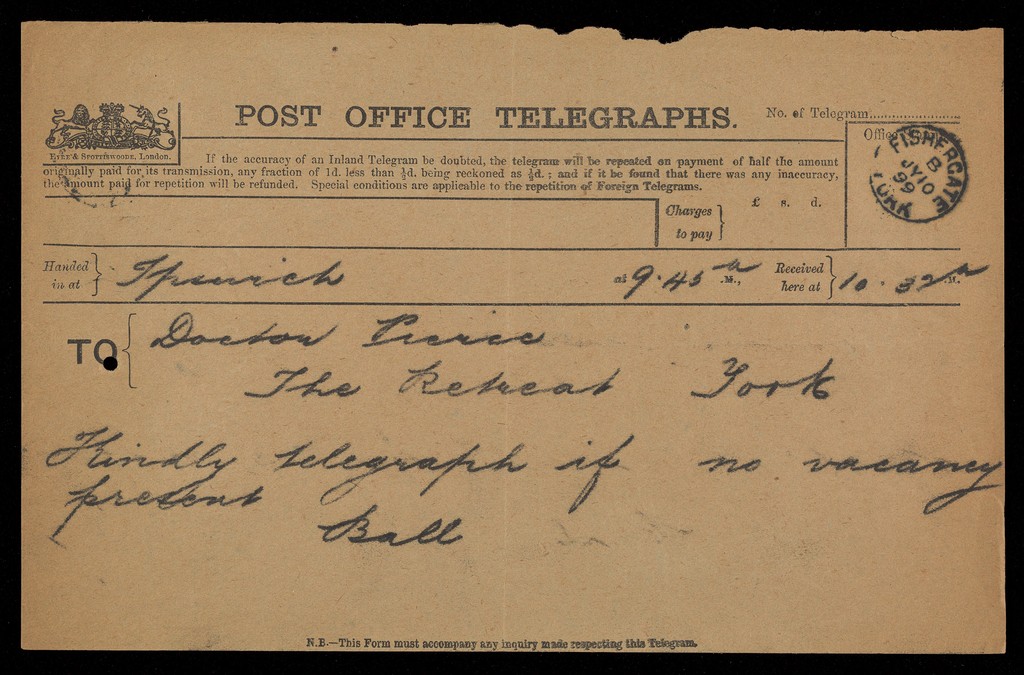 POST OFFICE TELEGRAPHS.
No. of Telegram
EYRE & SPOTTISWOODE, LONDON.
If the accuracy of an Inland Telegram be doubted, the telegram will be repeated on payment of half the amount
originally paid for its transmission, any fraction of 1d. less than ½d. being reckoned as ½d.; and if it be found that there was any inaccuracy,
the amount paid for repetition will be refunded. Special conditions are applicable to the repetition of Foreign Telegrams.
FISHERGATE
B
JY 10
99
YORK
Charges to pay } £ s. d.
Handed in at } Ipswich at 9.45 a M., Received here at } 10.32 a M.
TO { Doctor Pierce
The Retreat York
Kindly telegraph if no vacancy
present
Ball
N.B.—This Form must accompany any inquiry made respecting this Telegram.